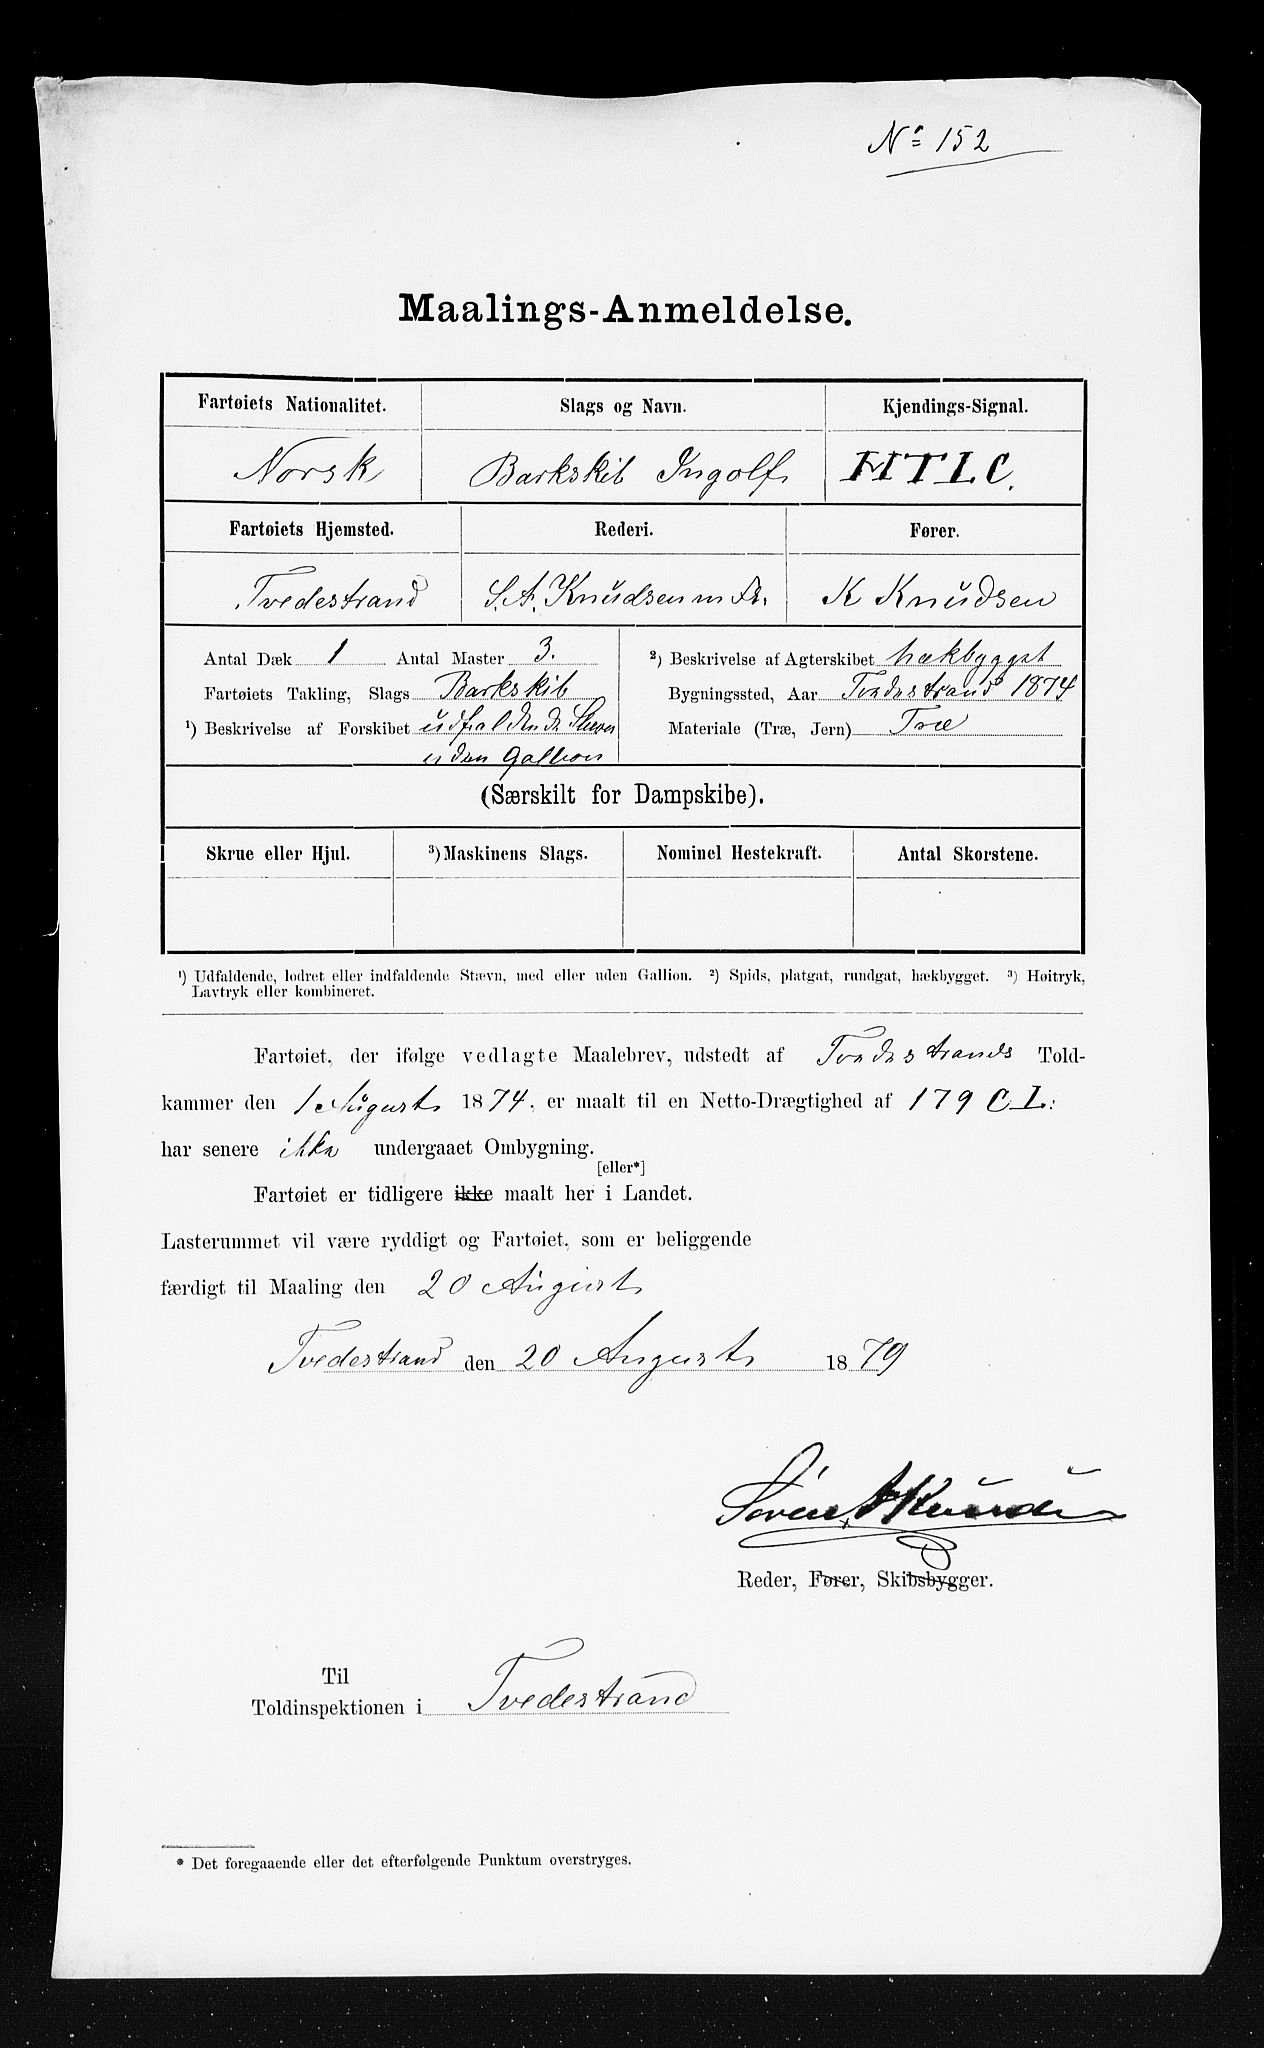 No 152
Maalings-Anmeldelse.
Fartøiets Nationalitet. Slags og Navn. Kjendings-Signal.
Norsk Barkskib Ingolf HTLC.
Fartøiets Hjemsted. Rederi. Fører.
Tvedestrand S. A. Knudsen m Fl. K Knudsen
Antal Dæk 1 Antal Master 3. ²) Beskrivelse af Agterskibet hækbygget
Fartøiets Takling, Slags Barkskib Bygningssted, Aar Tvedestrand 1874
¹) Beskrivelse af Forskibet udfaldende Stævn Materiale (Træ, Jern) Træ
uden Gallion
(Særskilt for Dampskibe).
Skrue eller Hjul. ³) Maskinens Slags. Nominel Hestekraft. Antal Skorstene.
¹) Udfaldende, lodret eller indfaldende Stævn, med eller uden Gallion. ²) Spids, platgat, rundgat, hækbygget. ³) Høitryk,
Lavtryk eller kombineret.
Fartøiet, der ifølge vedlagte Maalebrev, udstedt af Tvedestrands Told-
kammer den 1 August 1874, er maalt til en Netto-Drægtighed af 179 CL:
har senere ikke undergaaet Ombygning.
[eller*]
Fartøiet er tidligere ikke maalt her i Landet.
Lasterummet vil være ryddigt og Fartøiet, som er beliggende
færdigt til Maaling den 20 August
Tvedestrand den 20 August 1879
Søren A Knudsen
Reder, Fører, Skibsbygger.
Til
Toldinspektionen i Tvedestrand
* Det foregaaende eller det efterfølgende Punktum overstryges.